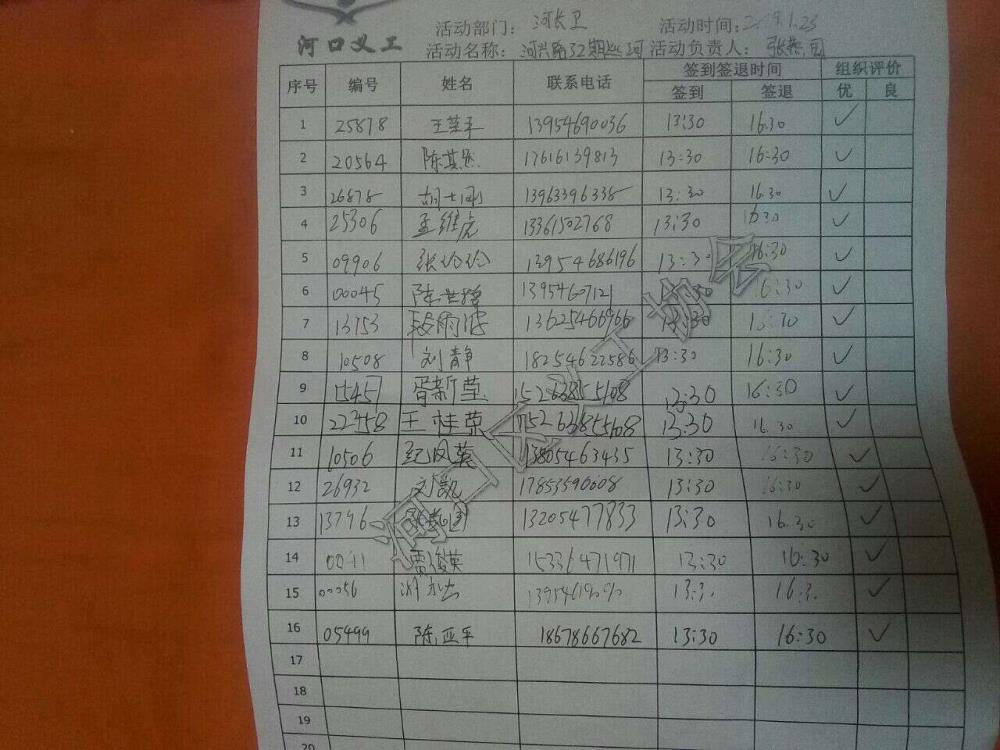 河口义工
活动部门： 河长卫 活动时间：2019.1.23
活动名称： 河兴路32期巡河 活动负责人：
序号 编号 姓名 联系电话 签到签退时间 组织评价
签到 签退 优 良
1 25878 13954690036 13:30 16:30 ✓
2 20564 17616139813 13:30 16:30 ✓
3 26878 胡士刚 13963396338 13:30 16:30 ✓
4 25306 孟维虎 13361502768 13:30 16:30 ✓
5 09906 张玲玲 13954686196 13:30 16:30 ✓
6 00045 13954607121 16:30 ✓
7 13753 段雨波 13625466966 13:30 ✓
8 10508 刘静 18254622586 13:30 16:30 ✓
9 胥新莹 15263855108 13:30 16:30 ✓
10 22458 王桂荣 15263855108 13:30 16:30 ✓
11 10506 纪凤英 13805463435 13:30 16:30 ✓
12 26932 刘凯 17853590608 13:30 16:30 ✓
13 13796 13205477833 13:30 16:30 ✓
14 雷俊英 15336471971 13:30 16:30 ✓
15 00056 ✓
16 05499 陈亚平 18678667682 13:30 16:30 ✓
17
18
19
20
河口区义工协会